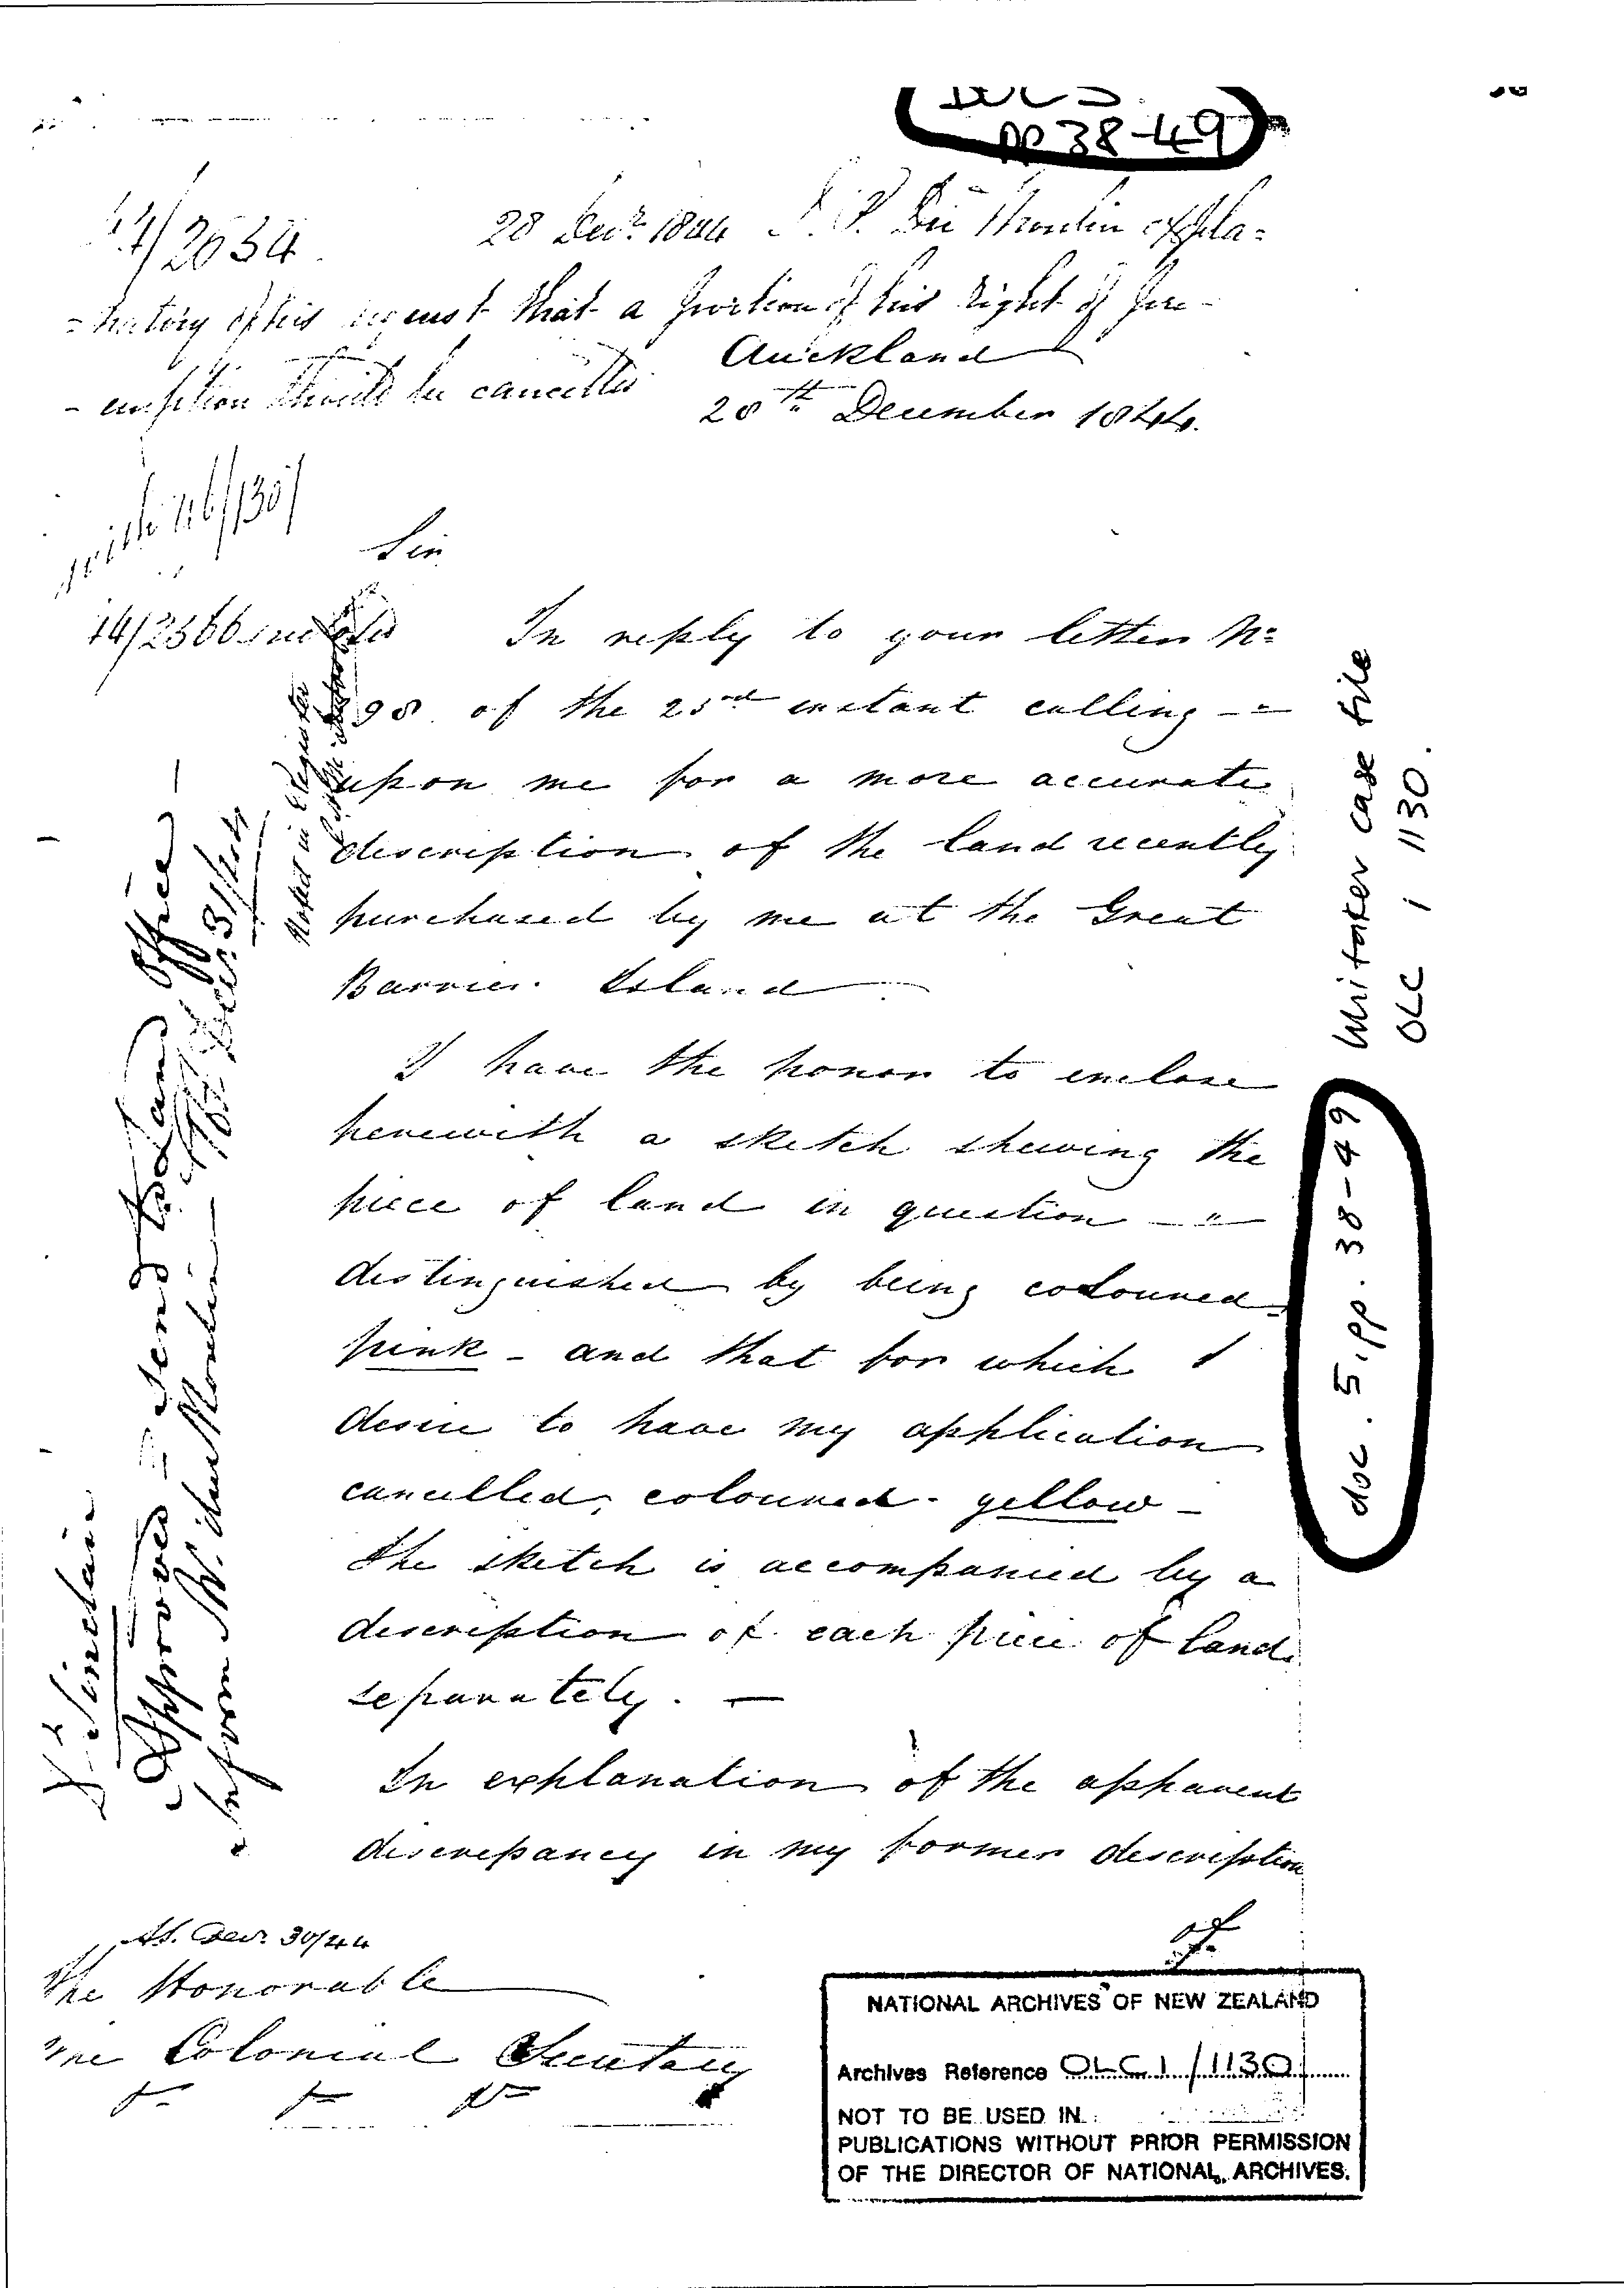 pp 38-49
44/2634
28 Decr. 1844 J. P. Du Moulin expla=
=natory of his request that a portion of his right of pre-
-emption should be cancelled
Auckland
28th December 1844.
46/1301
Sir
44/2566
In reply to your letter No
98 of the 23rd instant calling
upon me for a more accurate
description of the land recently
purchased by me at the Great
Barrier Island
I have the honor to enclose
herewith a sketch shewing the
piece of land in question
distinguished by being coloured
pink - and that for which I
desire to have my application
cancelled, coloured yellow -
The sketch is accompanied by a
description of each piece of land
separately. -
In explanation of the apparent
discrepancy in my former description
of
Noted in Register
Dr. Sinclair
Approved - Send to Land Office -
& inform Mr. du Moulin
Decr. 31/44
Whitaker case file
OLC 1 1130.
doc. 5. pp. 38-49
Decr. 30/44
The Honorable
The Colonial Secretary
NATIONAL ARCHIVES OF NEW ZEALAND
Archives Reference OLC 1/1130
NOT TO BE USED IN
PUBLICATIONS WITHOUT PRIOR PERMISSION
OF THE DIRECTOR OF NATIONAL ARCHIVES.